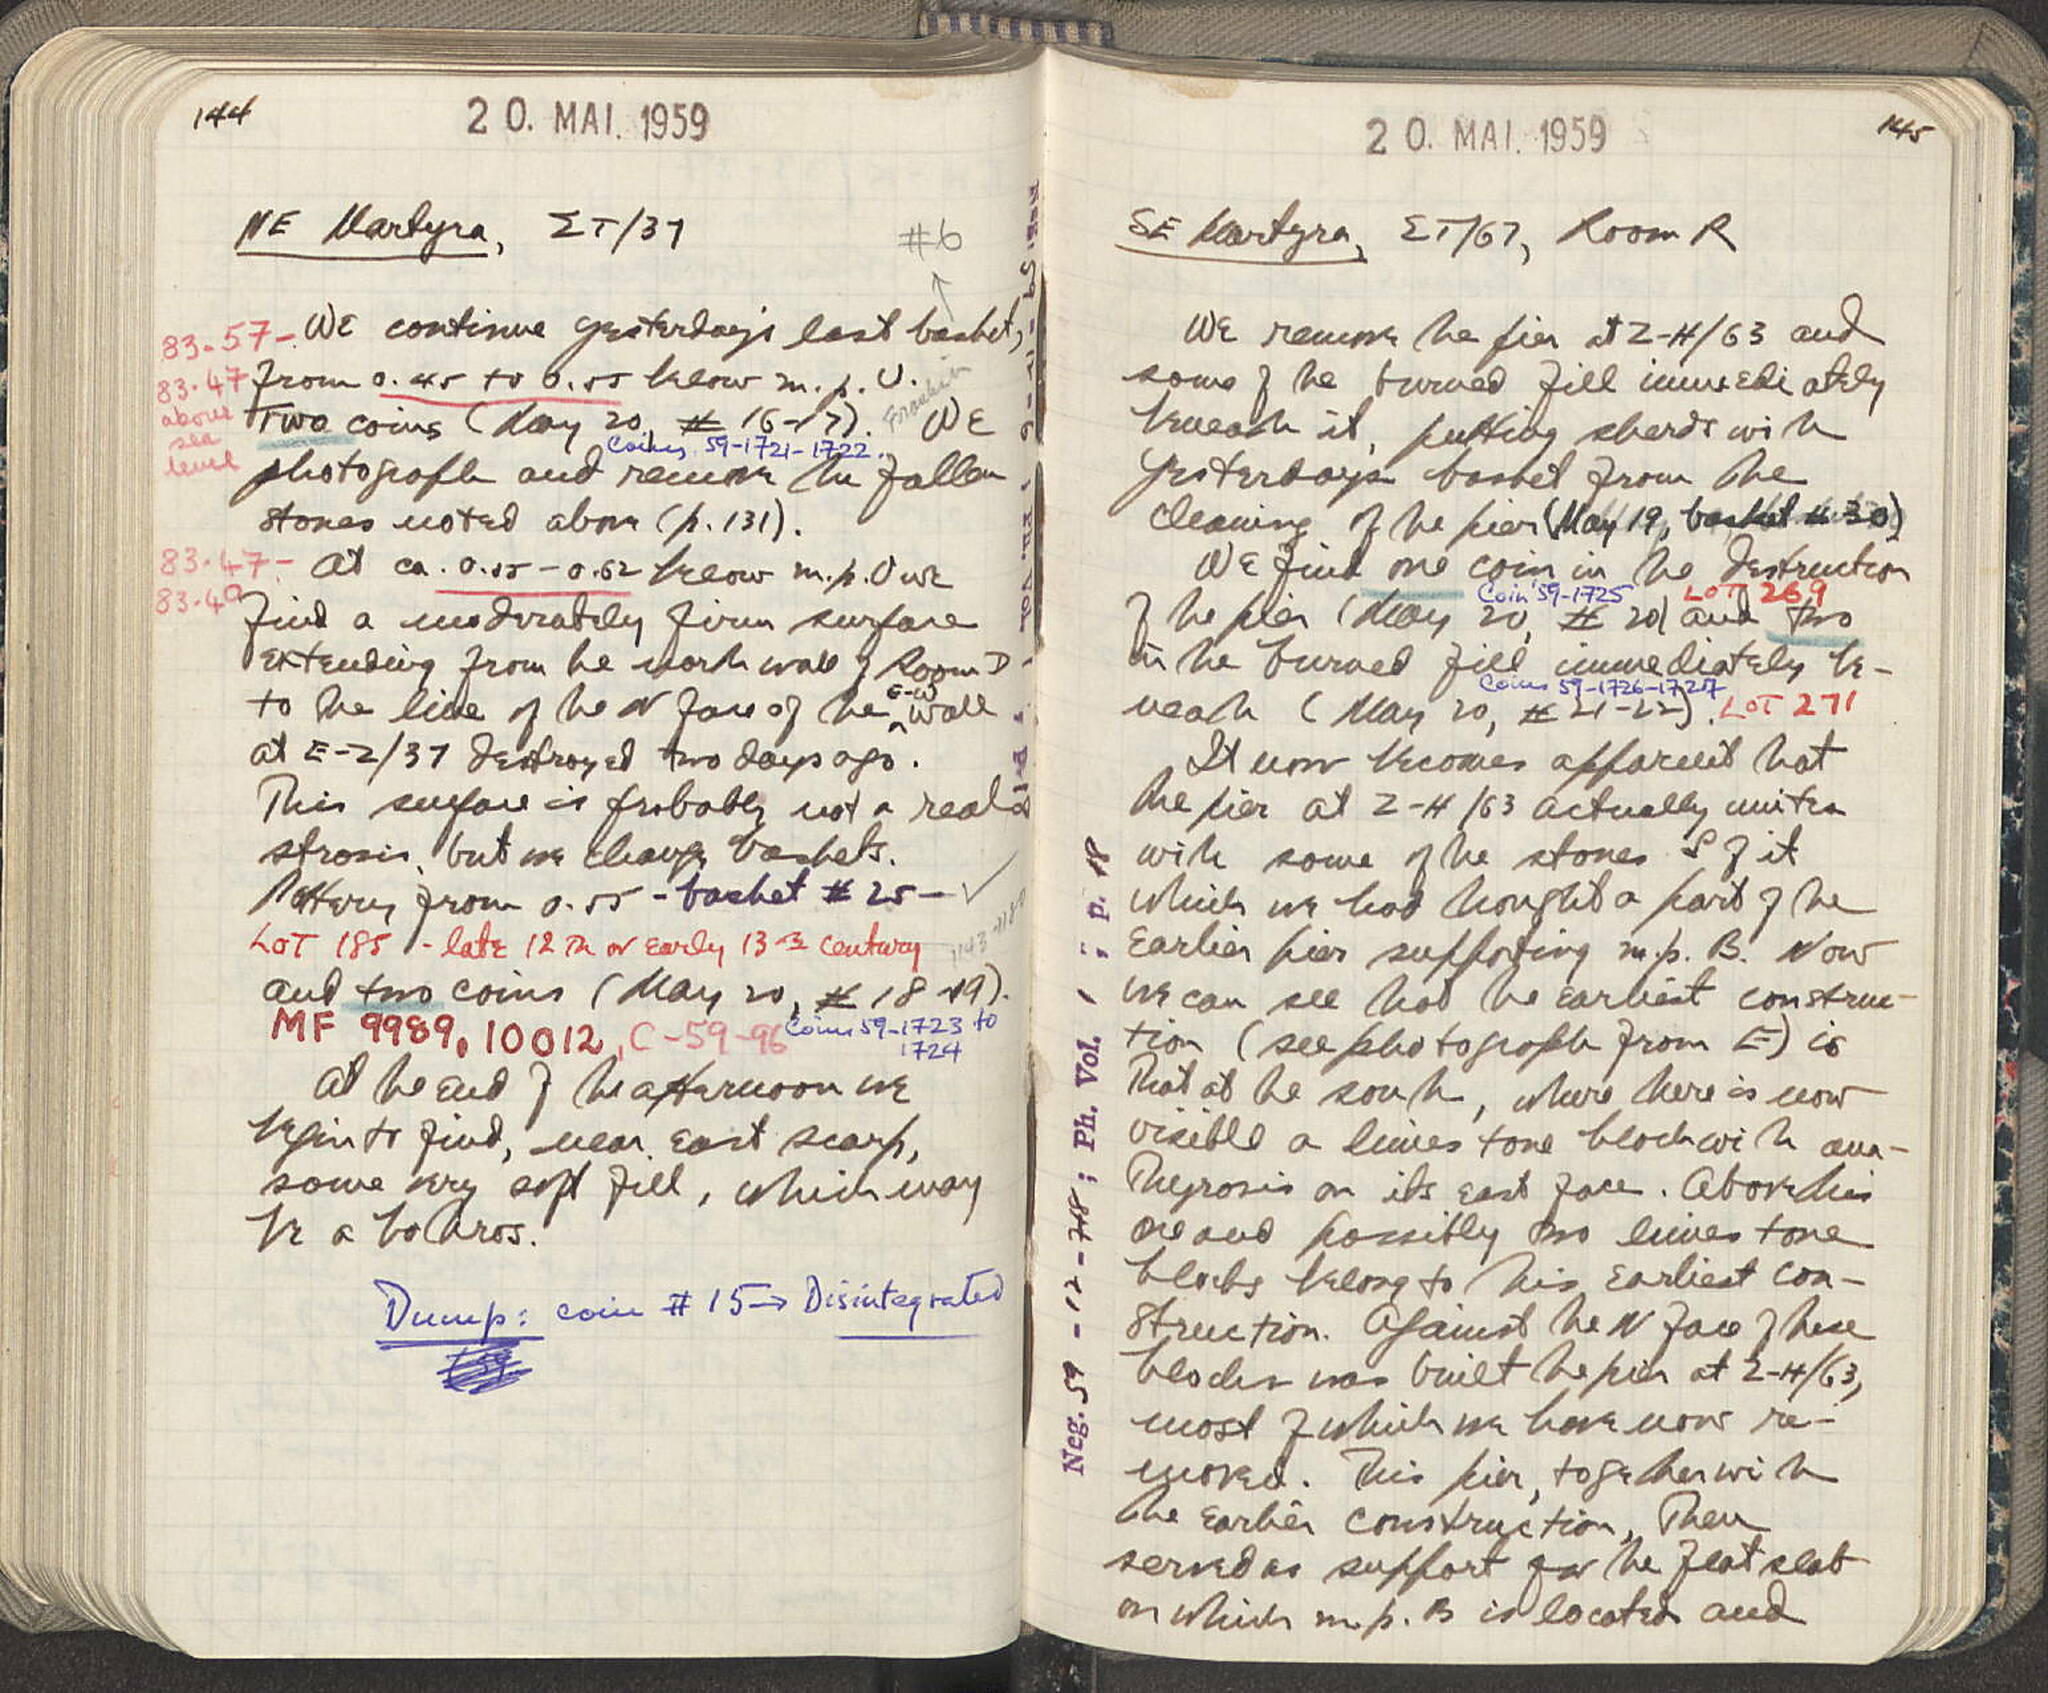 144
20. MAI. 1959
NE Martyra, ΣΤ/37
#6
83.57-
83.47
above
sea
level
We continue yesterday's last basket,
from 0.45 to 0.55 below m.p. U.
Two coins (May 20, # 16-17). We
Coins 59-1721-1722.
photograph and remove the fallen
stones noted above (p. 131).
83.47-
83.40
At ca. 0.55-0.62 below m.p. U we
find a moderately firm surface
extending from the north wall of Room D
to the line of the N face of the E-W wall
at E-2/37 destroyed two days ago.
This surface is probably not a real
strosis, but we change baskets.
Pottery from 0.55 - basket # 25 - ✓
LOT 185 - late 12th or early 13th century
and two coins (May 20, # 18-19).
MF 9989, 10012, C-59-96
Coins 59-1723 to
1724
At the end of the afternoon we
begin to find, near east scarp,
some very soft fill, which may
be a bothros.
Dump: coin # 15 → Disintegrated
145
20. MAI. 1959
SE Martyra, ΣΤ/67, Room R
We remove the pier at Z-H/63 and
some of the burned fill immediately
beneath it, putting sherds with
yesterday's basket from the
cleaning of the pier (May 19, basket # 30)
We find one coin in the destruction
Coin 59-1725 LOT 269
of the pier (May 20, # 20) and two
in the burned fill immediately be-
Coins 59-1726-1727
neath (May 20, # 21-22). LOT 271
It now becomes apparent that
the pier at Z-H/63 actually unites
with some of the stones S of it
which we had thought a part of the
earlier pier supporting m.p. B. Now
we can see that the earliest construc-
tion (see photograph from E) is
that at the south, where there is now
visible a limestone block with ana-
thyrosis on its east face. Above this
one and possibly two limestone
blocks belong to this earliest con-
struction. Against the N face of these
blocks was built the pier at Z-H/63,
most of which we have now re-
moved. This pier, together with
the earlier construction, then
served as support for the flat slab
on which m.p. B is located and
Neg. 59 - 12 - 48 ; Ph. Vol. 1 ; p. 18